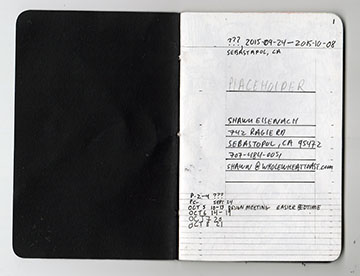 1
??? 2015-09-24 — 2015-10-08
SEBASTAPOL, CA
PLACEHOLDER
SHAWN EISENACH
742 RAGLE RD
SEBASTOPOL, CA 95472
707-484-0051
SHAWN@WHOLEWHEATTOAST.COM
P. 2-4 ???
PG. SEPT 24
OCT 5 10-13 DESIGN MEETING EASIER BEDTIME
OCT 6 14-19
OCT 7 20
OCT 8 21